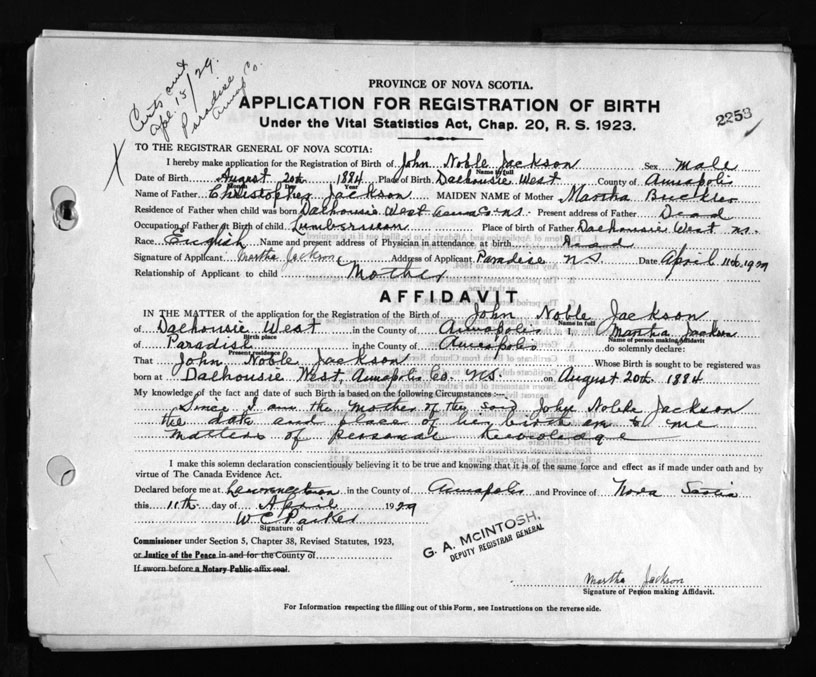 Certs sent
Apl 15/29.
Paradise
Annap Co.
PROVINCE OF NOVA SCOTIA.
APPLICATION FOR REGISTRATION OF BIRTH
Under the Vital Statistics Act, Chap. 20, R. S. 1923.
2253
TO THE REGISTRAR GENERAL OF NOVA SCOTIA:
I hereby make application for the Registration of Birth of John Noble Jackson Sex Male
Name in full
Date of Birth August 20th 1884 Place of Birth Dalhousie West County of Annapolis
Month Day Year
Name of Father Christopher Jackson MAIDEN NAME of Mother Martha Buckler
Residence of Father when child was born Dalhousie West Anna Co. N.S. Present address of Father Dead
Occupation of Father at Birth of child Lumberman Place of birth of Father Dalhousie West N.S.
Race English Name and present address of Physician in attendance at birth Dead
Signature of Applicant Martha Jackson Address of Applicant Paradise N.S. Date April 11th 1929
Relationship of Applicant to child Mother
AFFIDAVIT
IN THE MATTER of the application for the Registration of the Birth of John Noble Jackson
Name in full
of Dalhousie West in the County of Annapolis I, Martha Jackson
Birth place Name of person making Affidavit
of Paradise in the County of Annapolis do solemnly declare:
Present residence
That John Noble Jackson Whose Birth is sought to be registered was
born at Dalhousie West, Annapolis Co. N.S. on August 20th 1884
My knowledge of the fact and date of such Birth is based on the following Circumstances:—
Since I am the mother of the said John Noble Jackson
the date and place of his birth are to me
matters of personal knowledge
I make this solemn declaration conscientiously believing it to be true and knowing that it is of the same force and effect as if made under oath and by
virtue of The Canada Evidence Act.
Declared before me at Lawrencetown in the County of Annapolis and Province of Nova Scotia
this 11th day of April 1929
W C Parker
Signature of
Commissioner under Section 5, Chapter 38, Revised Statutes, 1923,
or Justice of the Peace in and for the County of
If sworn before a Notary Public affix seal.
G. A. McINTOSH,
DEPUTY REGISTRAR GENERAL
Martha Jackson
Signature of Person making Affidavit.
For Information respecting the filling out of this Form, see Instructions on the reverse side.